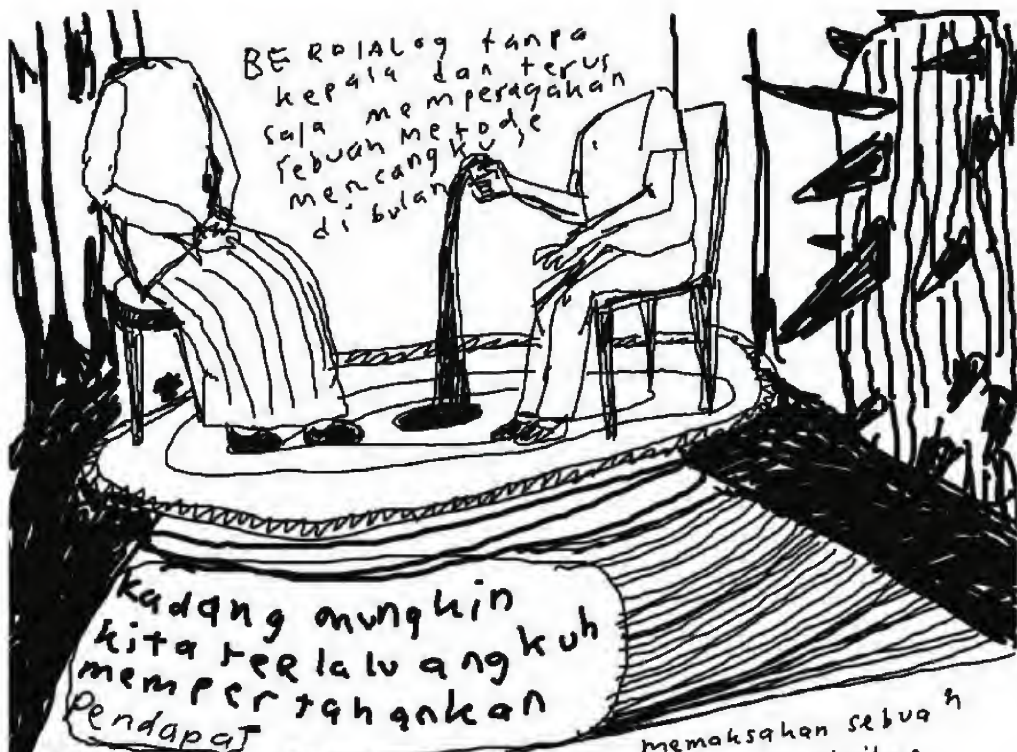 BERDIALOG tanpa
kepala dan terus
saja memperagakan
sebuah metode
mencangkul
di bulan
Kadang mungkin
kita terlalu angkuh
mempertahankan
Pendapat
memaksahan sebuah